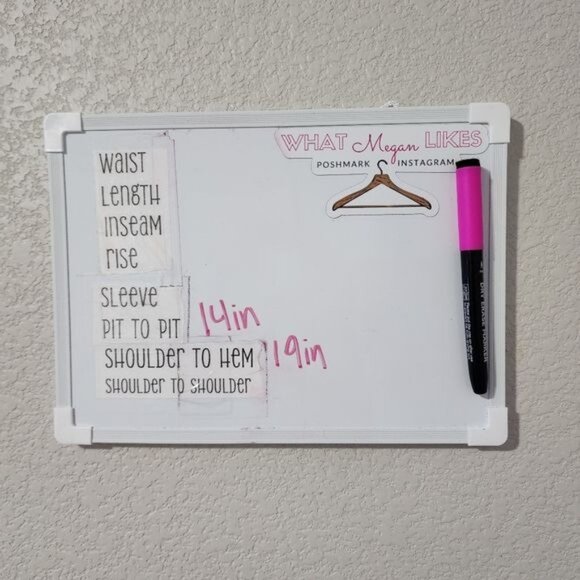 WHAT Megan LIKES
POSHMARK INSTAGRAM
WAIST
LENGTH
INSEAM
RISE
SLEEVE
PIT TO PIT 14in
SHOULDER TO HEM 19in
SHOULDER TO SHOULDER
DRY ERASE MARKER